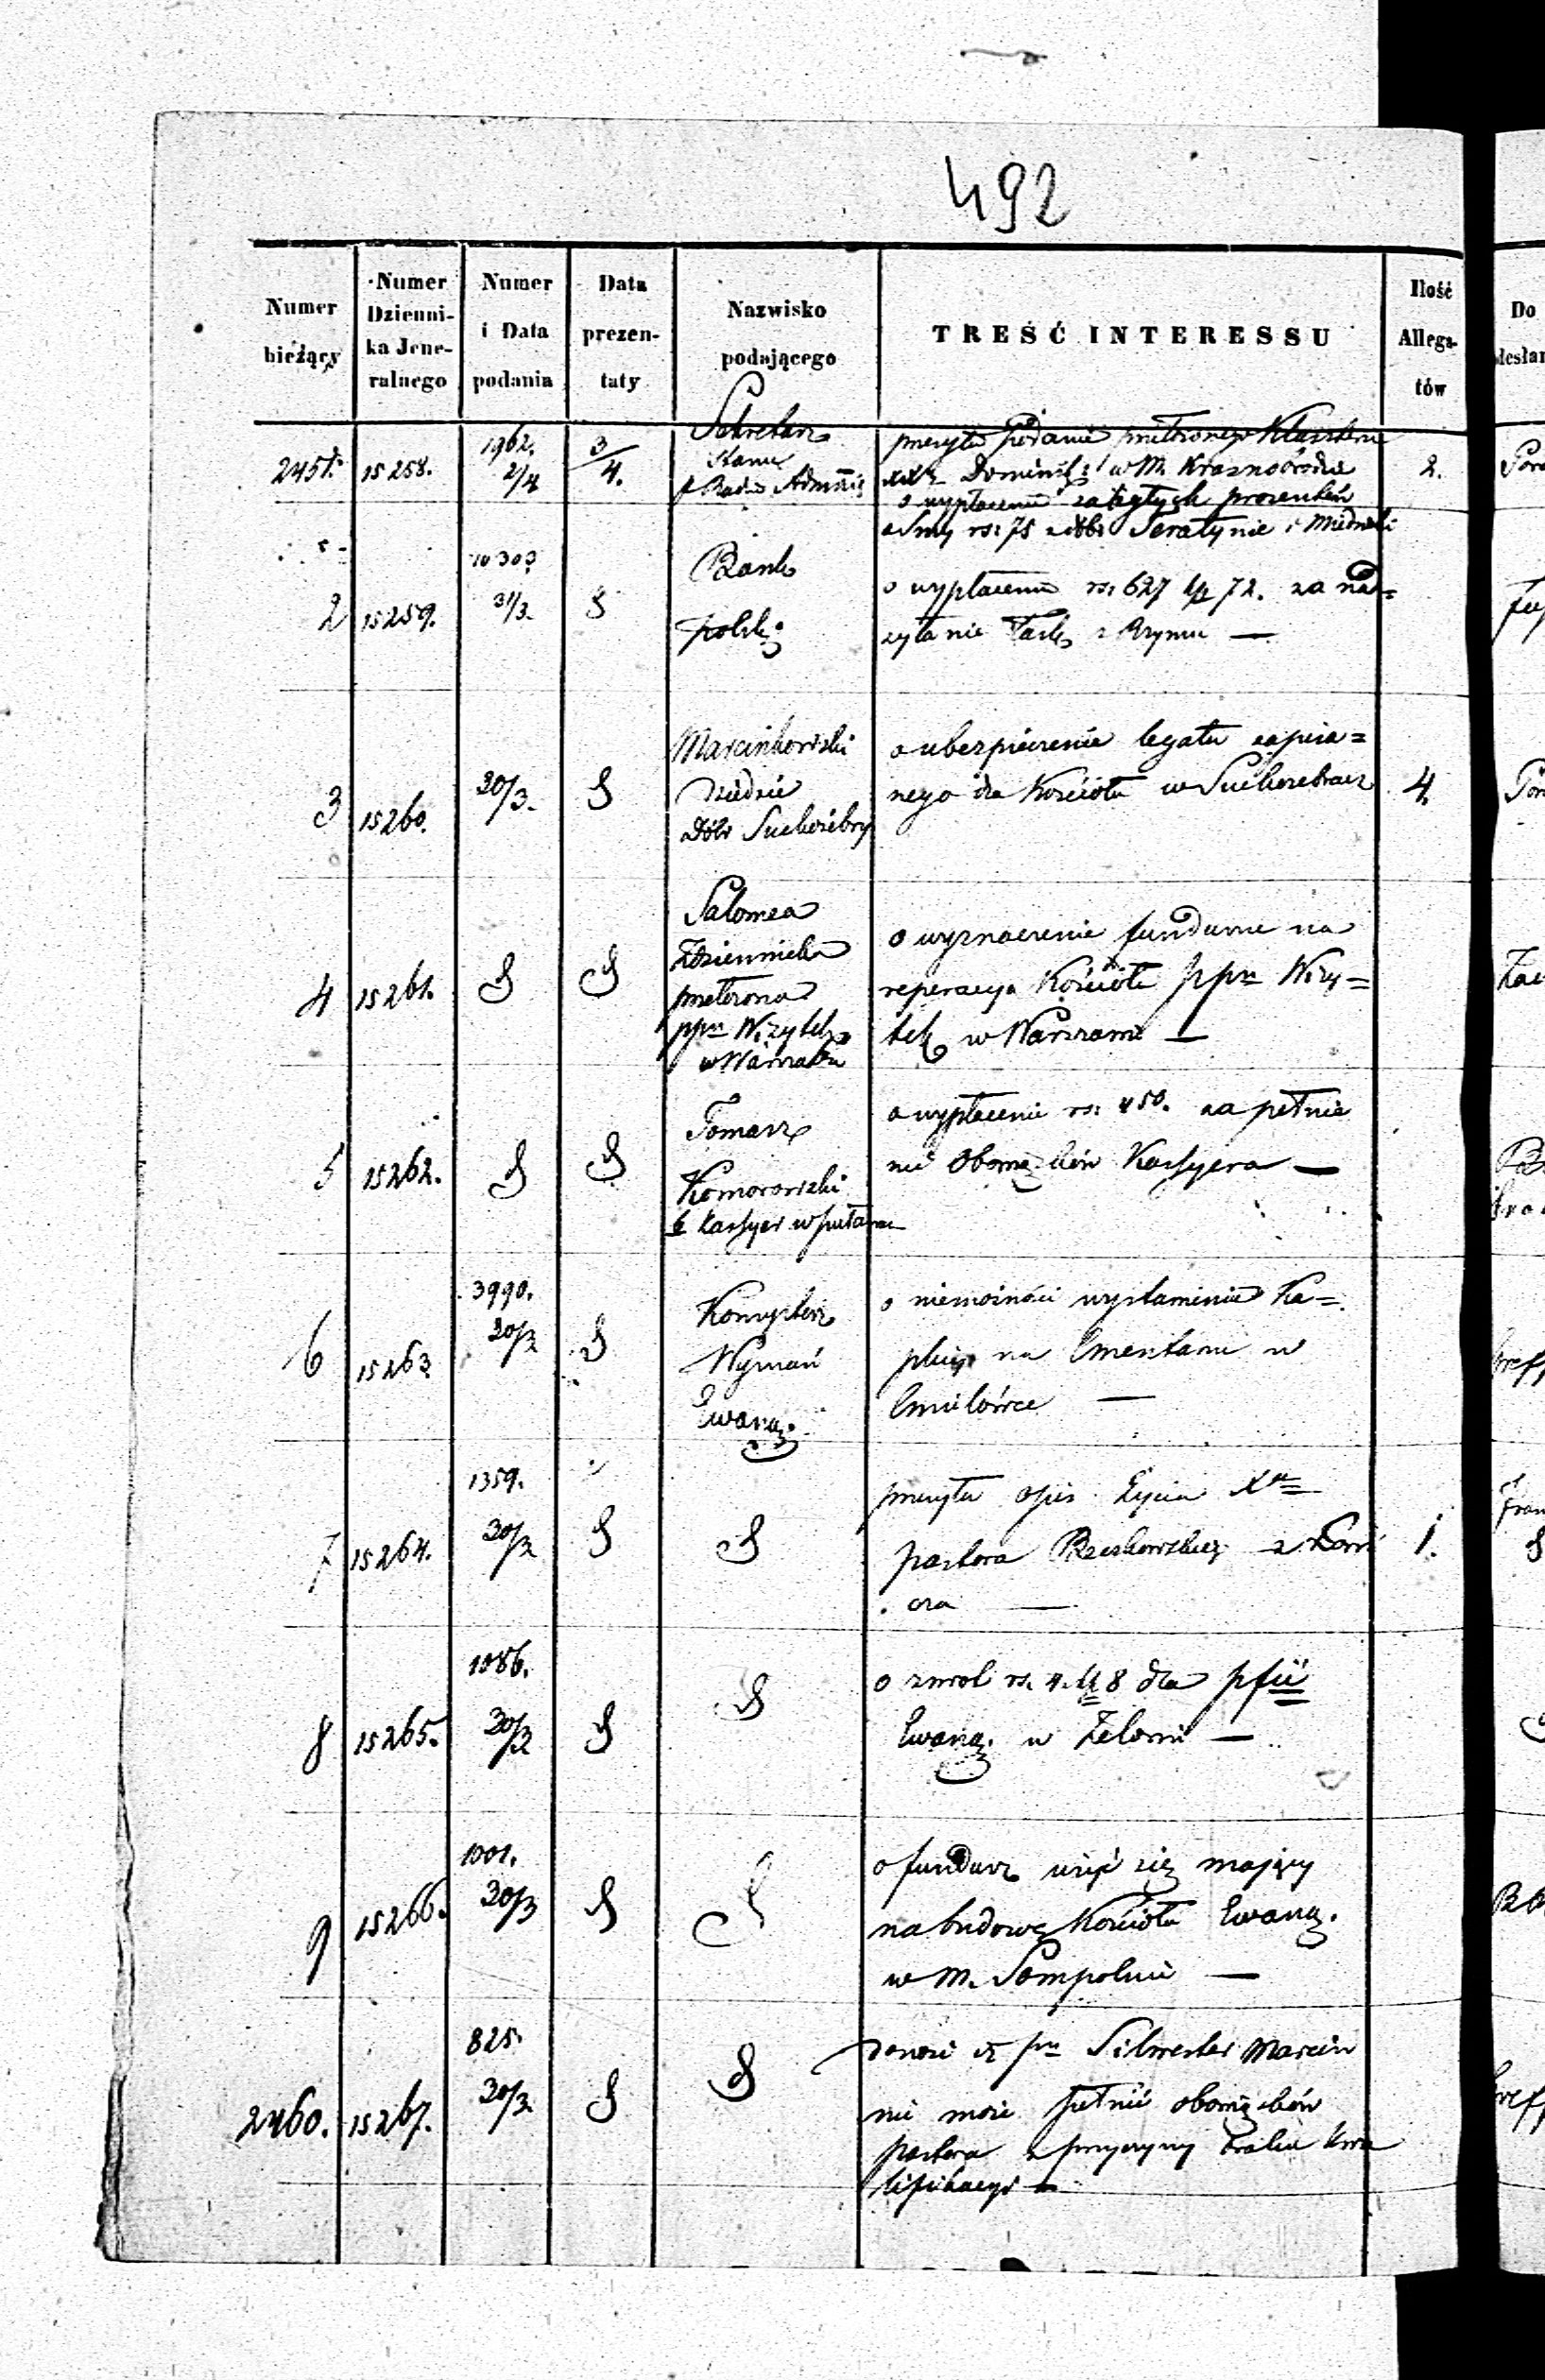 492
Numer bieżący
Numer Dzienni-ka Jene-ralnego
Numer i Data podania
Data prezen-taty
Nazwisko podającego
TREŚĆ INTERESSU
Ilość Allega-tów
Do
2451. 15258. 1962. 2/4 3/4. Sekretarz Stanu
przesyła podanie przełożonego Klasztoru
XXr Dominik: w M. Krasnobrodzie
o wypłacenie zaległych procentów
rs: 75 z dóbr Teratynie i Miedniki
2.
2 15259. 10303 31/3. S Bank polski
o wypłacenie rs: 627 k 72. za nad=
syłanie z Rzymu —
3 15260. 20/3. S Marcinkowski dziedzic Dóbr Suchożebry
o ubezpieczenie legatu zapisa=
nego dla Kościoła w Suchożebrach
4.
4 15261. S S Salomea przełożona ppn Wizytek w Warszawie
o wyznaczenie funduszu na
reperacyą Kościoła ppn Wizy=
tek w Warszawie —
5 15262. S S Tomasz Komorowski b. Kassyer w
o wypłacenie rs: 450. za pełnie
nie obowiązków Kassyera —
6 15263. 3990. 20/3 S Konsystorz Wyznań Ewang.
o niemożności wystawienia Ka=
plicy na Cmentarzu w
—
7 15264. 1359. 30/3 S S
przesyła opis życia Xa
pastora z
—
1.
8 15265. 1086. 30/3 S S
o zwrot rs. 4. k 8 dla pfii
Ewang. w Zelowie —
9 15266. 1001. 30/3 S S
o fundusz użyć się mający
na budowę Kościoła Ewang.
w M. Sompolnie —
2460. 15267. 825. 30/3. S S
donosi iż pn Silwester Marcin
nie może pełnić obowiązków
pastora z przyczyny braku kwa
lifikacyi —